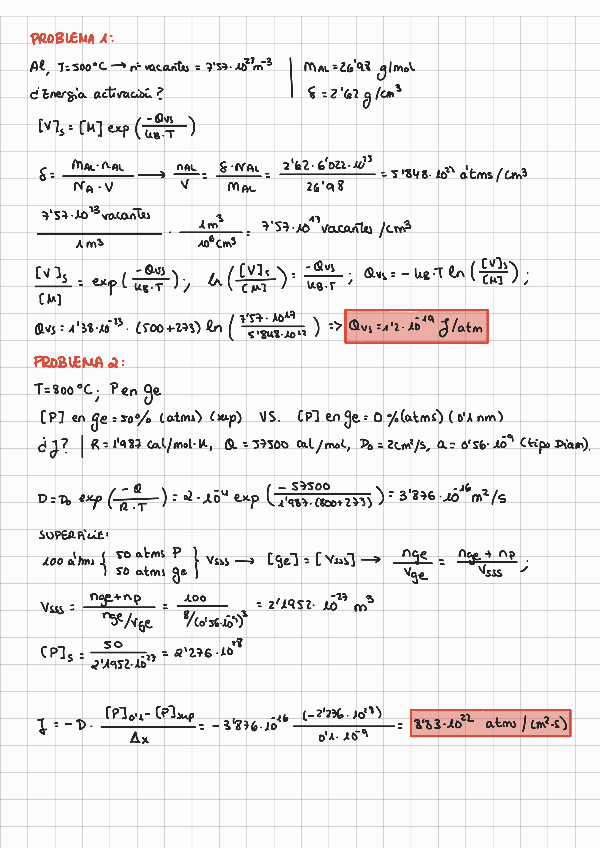 PROBLEMA 1:
Al, T=500°C → nº vacantes = 7'57·10²³ m⁻³ | M_AL = 26'98 g/mol
¿Energía activación? | δ = 2'62 g/cm³
[V]s = [M] exp (-Qvs / kB·T)
δ = (M_AL · n_AL) / (N_A · V) → n_AL / V = (δ · N_AL) / M_AL = (2'62 · 6'022·10²³) / 26'98 = 5'848·10²² átms/cm³
7'57·10²³ vacantes / 1 m³ · 1 m³ / 10⁶ cm³ = 7'57·10¹⁷ vacantes/cm³
[V]s / [M] = exp (-Qvs / kB·T); ln ([V]s / [M]) = -Qvs / kB·T; Qvs = -kB·T ln ([V]s / [M]);
Qvs = 1'38·10⁻²³ · (500+273) ln (7'57·10¹⁷ / 5'848·10²²) => Qvs = 1'2·10⁻¹⁹ J/atm
PROBLEMA 2:
T=800°C; P en ge
[P] en ge = 50% (atms) (sup) VS. [P] en ge = 0 % (atms) (0'1 nm)
¿J? | R = 1'987 cal/mol·K, Q = 57500 cal/mol, D₀ = 2cm²/s, a = 0'56·10⁻⁹ (tipo Diam).
D = D₀ exp (-Q / R·T) = 2·10⁻⁴ exp (-57500 / 1'987·(800+273)) = 3'876·10⁻¹⁶ m²/s
SUPERFICIE:
100 átms { 50 atms P 50 atms ge } Vsss → [ge] = [Vsss] → nge / Vge = (nge + np) / Vsss;
Vsss = (nge+np) / (nge/Vge) = 100 / (8/(0'56·10⁻⁹)³) = 2'1952·10⁻²⁷ m³
[P]s = 50 / 2'1952·10⁻²⁷ = 2'276·10²⁸
J = -D · ([P]0'1 - [P]sup) / Δx = -3'876·10⁻¹⁶ (-2'276·10²⁸) / (0'1·10⁻⁹) = 8'83·10²² atms/(m²·s)